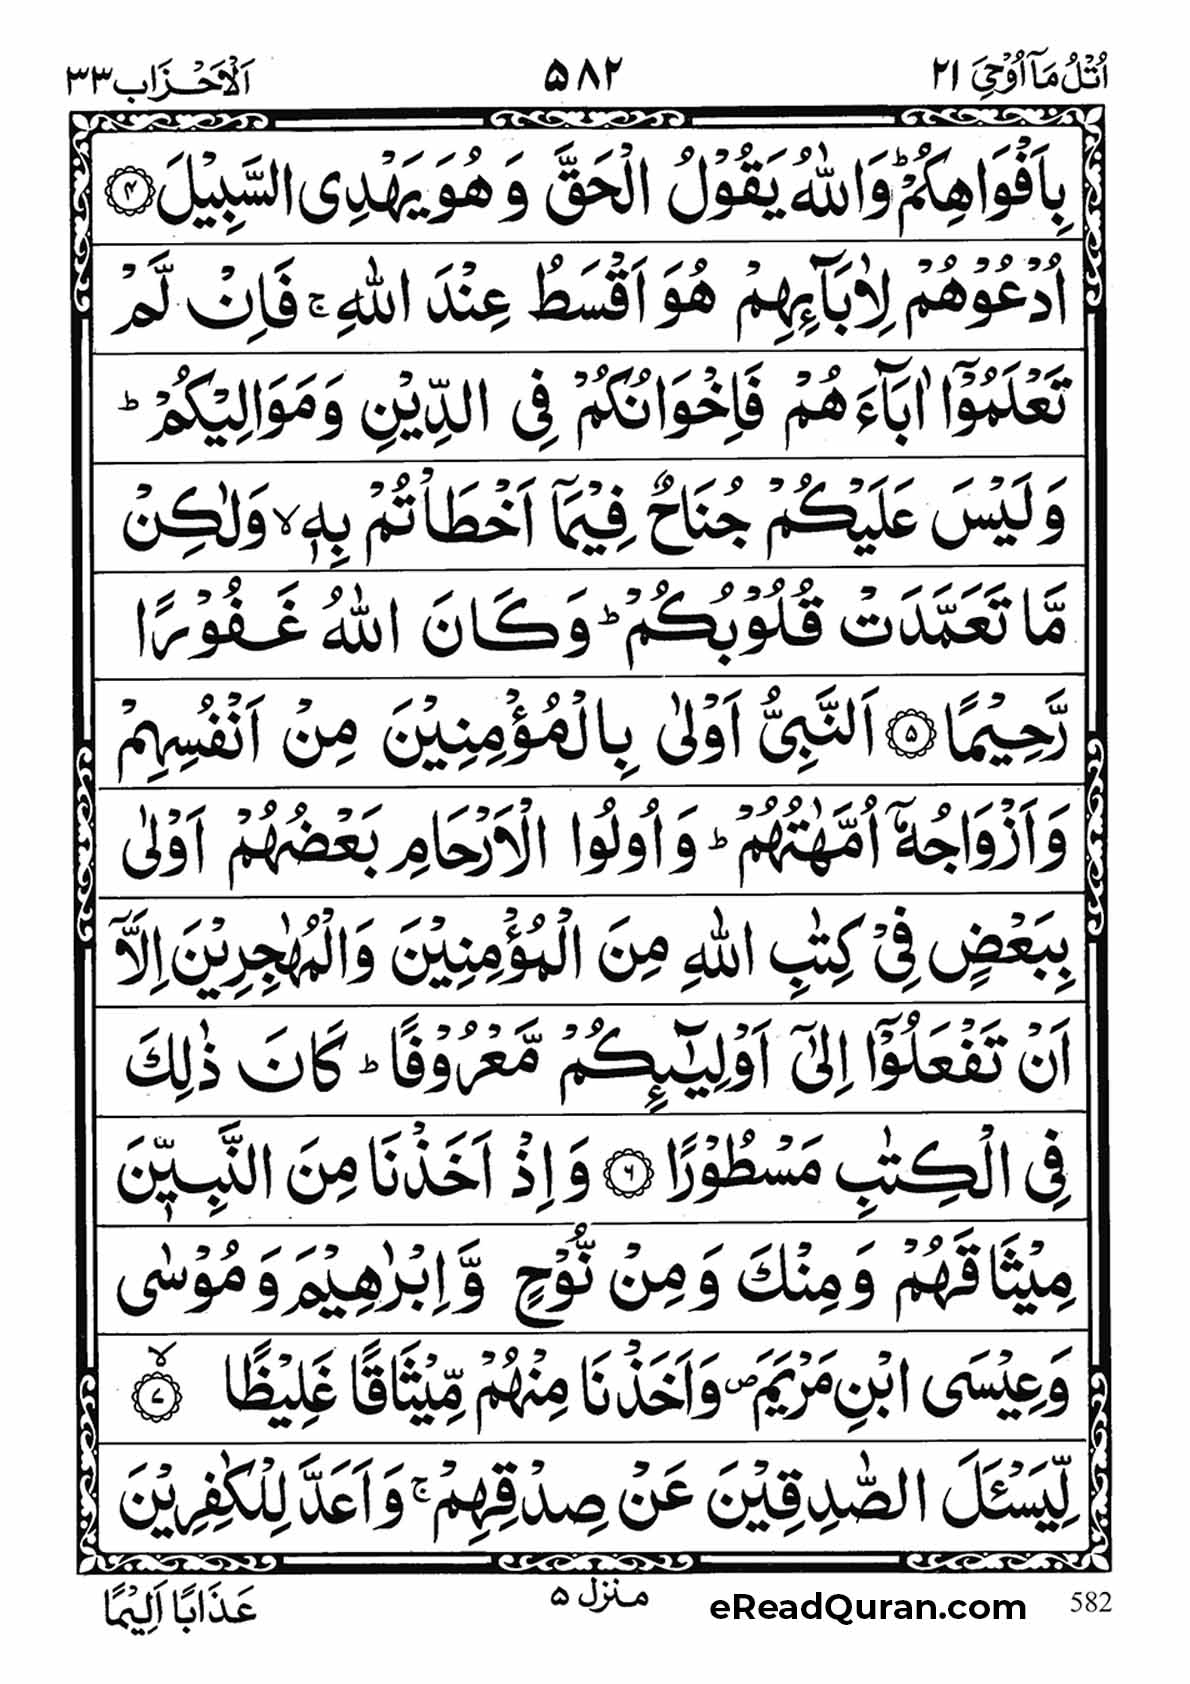 اُتْلُ مَاۤ اُوْحِیَ ۲۱ ۵۸۲ اَلْاَحْزَاب ۳۳
بِاَفْوَاهِكُمْ ؕ وَاللّٰهُ یَقُوْلُ الْحَقَّ وَ هُوَ یَهْدِی السَّبِیْلَ ۴
اُدْعُوْهُمْ لِاٰبَآىِٕهِمْ هُوَ اَقْسَطُ عِنْدَ اللّٰهِ ۚ فَاِنْ لَّمْ
تَعْلَمُوْۤا اٰبَآءَ هُمْ فَاِخْوَانُكُمْ فِی الدِّیْنِ وَ مَوَالِیْكُمْ ؕ
وَ لَیْسَ عَلَیْكُمْ جُنَاحٌ فِیْمَاۤ اَخْطَاْتُمْ بِهٖ ۙ وَلٰكِنْ
مَّا تَعَمَّدَتْ قُلُوْبُكُمْ ؕ وَ كَانَ اللّٰهُ غَفُوْرًا
رَّحِیْمًا ۵ اَلنَّبِیُّ اَوْلٰی بِالْمُؤْمِنِیْنَ مِنْ اَنْفُسِهِمْ
وَ اَزْوَاجُهٗۤ اُمَّهٰتُهُمْ ؕ وَ اُولُوا الْاَرْحَامِ بَعْضُهُمْ اَوْلٰی
بِبَعْضٍ فِیْ كِتٰبِ اللّٰهِ مِنَ الْمُؤْمِنِیْنَ وَالْمُهٰجِرِیْنَ اِلَّاۤ
اَنْ تَفْعَلُوْۤا اِلٰۤی اَوْلِیٰٓىِٕكُمْ مَّعْرُوْفًا ؕ كَانَ ذٰلِكَ
فِی الْكِتٰبِ مَسْطُوْرًا ۶ وَ اِذْ اَخَذْنَا مِنَ النَّبِیّٖنَ
مِیْثَاقَهُمْ وَ مِنْكَ وَ مِنْ نُّوْحٍ وَّ اِبْرٰهِیْمَ وَ مُوْسٰی
وَ عِیْسَی ابْنِ مَرْیَمَ ۪ وَ اَخَذْنَا مِنْهُمْ مِّیْثَاقًا غَلِیْظًا ۙ ۷
لِّیَسْـَٔلَ الصّٰدِقِیْنَ عَنْ صِدْقِهِمْ ۚ وَ اَعَدَّ لِلْكٰفِرِیْنَ
عَذَابًا اَلِیْمًا
منزل ۵
eReadQuran.com
582